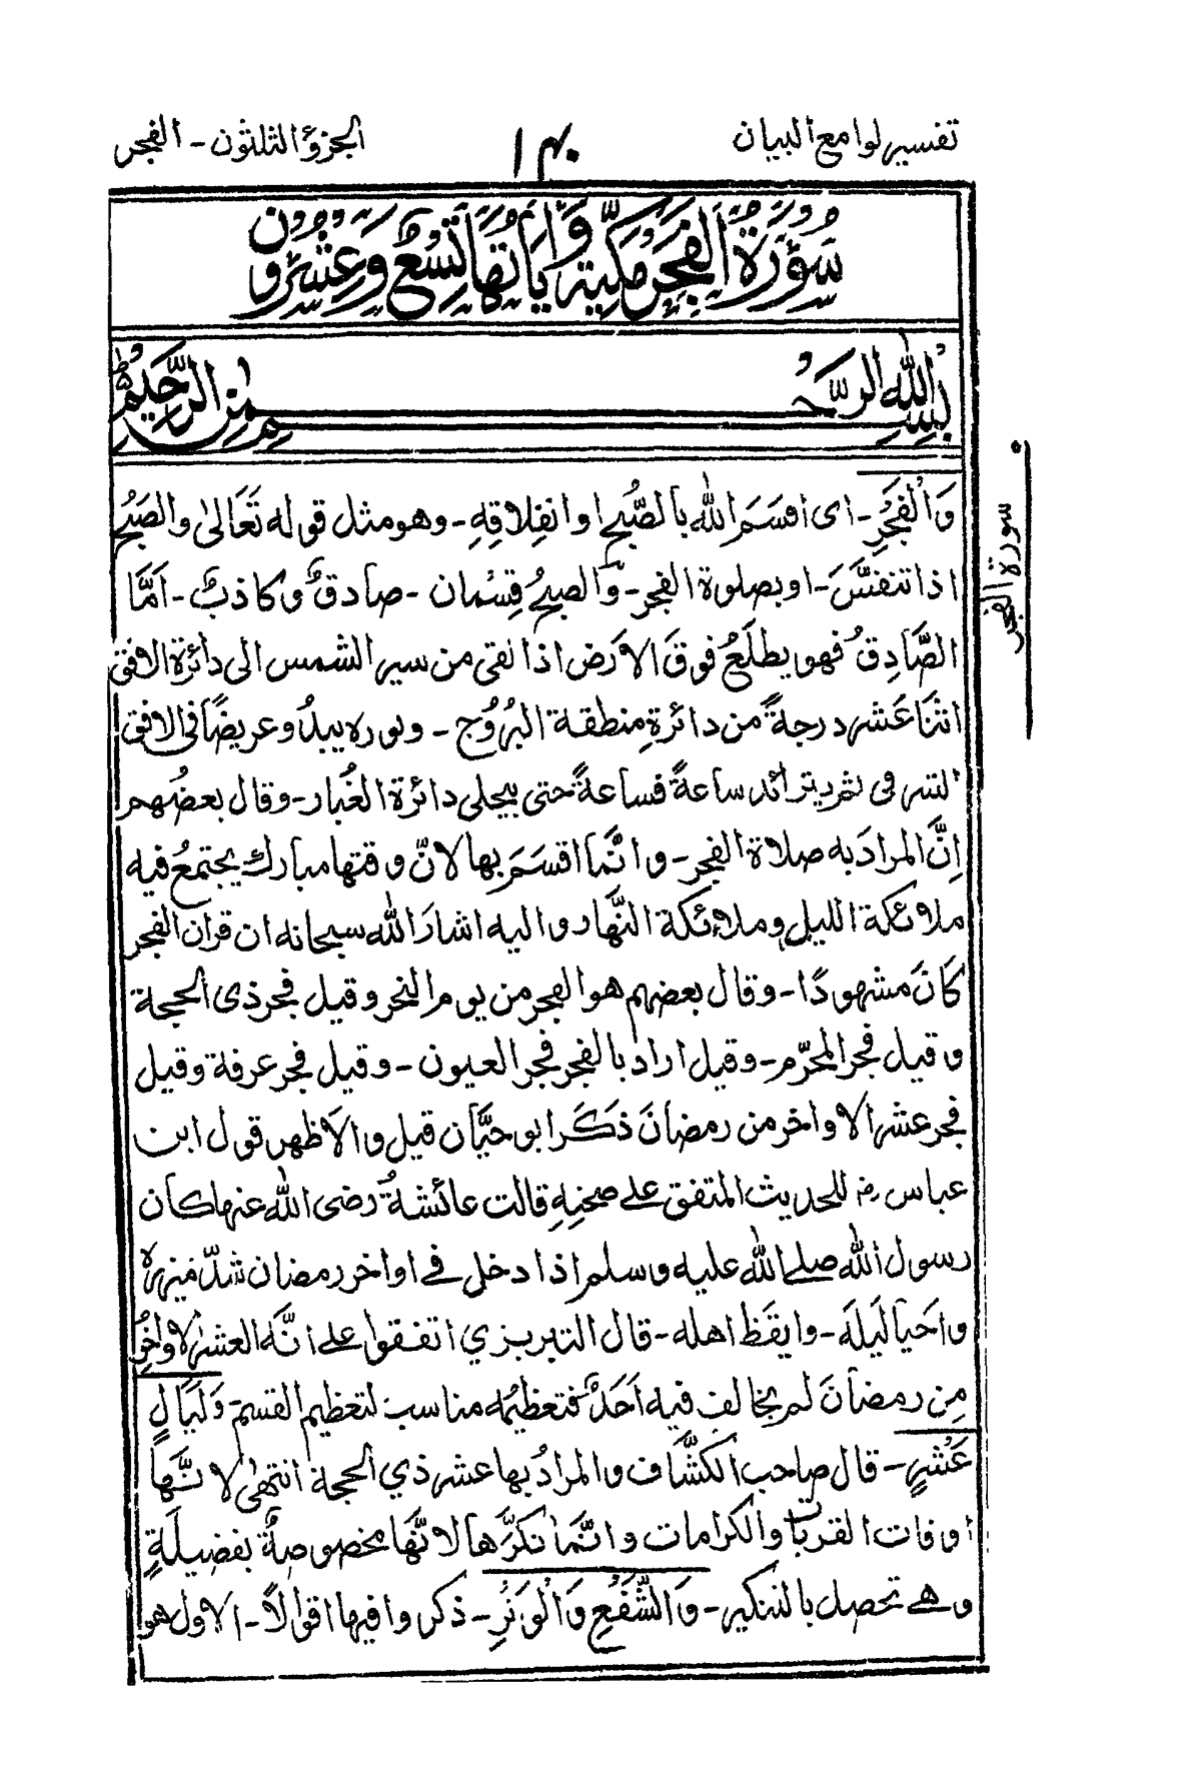 تفسير لوامع البيان
الجزؤ الثلثون - الفجر
سُوْرَةُ الْفَجْرِ مَكِّيَّةٌ وَّاٰيَاتُهَا تِسْعٌ وَّعِشْرُوْنَ
بِسْمِ اللهِ الرَّحْمٰنِ الرَّحِيْمِ
وَالْفَجْرِ - اى اقسَمَ اللهُ بالصُّبحِ او انفِلاقِهِ - وهو مثل قوله تَعَالىٰ والصُبْحِ
اذا تنفسَّ - او بصلوة الفجر - وَالصبحُ قِسْمان - صادقٌ وكاذبٌ - اَمَّا
الصَّادِقُ فهو يطلَعُ فوقَ الاَرض اذا بقى من سير الشمس الى دائرة الافق
اثنَا عَشر درجةً من دائرةِ منطقة البُرُوج - ونوره يبدُ وعريضًا فى الافق
الشرقى ثم يتزائد ساعةً فساعةً حتى يجلى دائرة الغُبار - وقال بعضُهم
اِنَّ المرادَ به صلاة الفجر - وانَّما اقسَمَ بها لانّ وقتها مبارك يجتمعُ فيه
ملائكة الليل وملائكة النَّهار واليه اشارَ الله سبحانه ان قران الفجر
كَانَ مشهودًا - وقال بعضهم هو الفجر من يوم النحر وقيل فجر ذى الحجة
وقيل فجر المحرّم - وقيل اراد بالفجر فجر العيون - وقيل فجر عرفة وقيل
فجر عشر الاواخر من رمضانَ ذَكَرَ ابو حيَّان قيل والاَظهر قول ابن
عباس رض للحديث المتفق على صحتهِ قالت عائشةُ رضى الله عنها كان
رسول الله صلى الله عليه وسلم اذا دخل فى اواخر رمضان شدّ مئزره
واَحيَا لَيلَه - وايقَظ اهله - قال التبريزي اتفقوا على انَّه العشر الاواخِرُ
مِن رمضانَ لم يخالف فيه اَحَدٌ فتعظيمُه مناسب لتعظيم القسم وَلَيَالٍ
عَشْرٍ - قال صاحب الكشَّاف والمرادُ بها عشر ذي الحجة انتهىٰ لانَّها
اوقات القربات والكرامات وانَّما نكرَّها لانَّها مخصوصةٌ بفضيلَةٍ
وهى تحصل بالتنكير - وَالشَّفْعِ وَالْوَتْرِ - ذكروا فيها اقوالاً - الاول هو
سورة الفجر